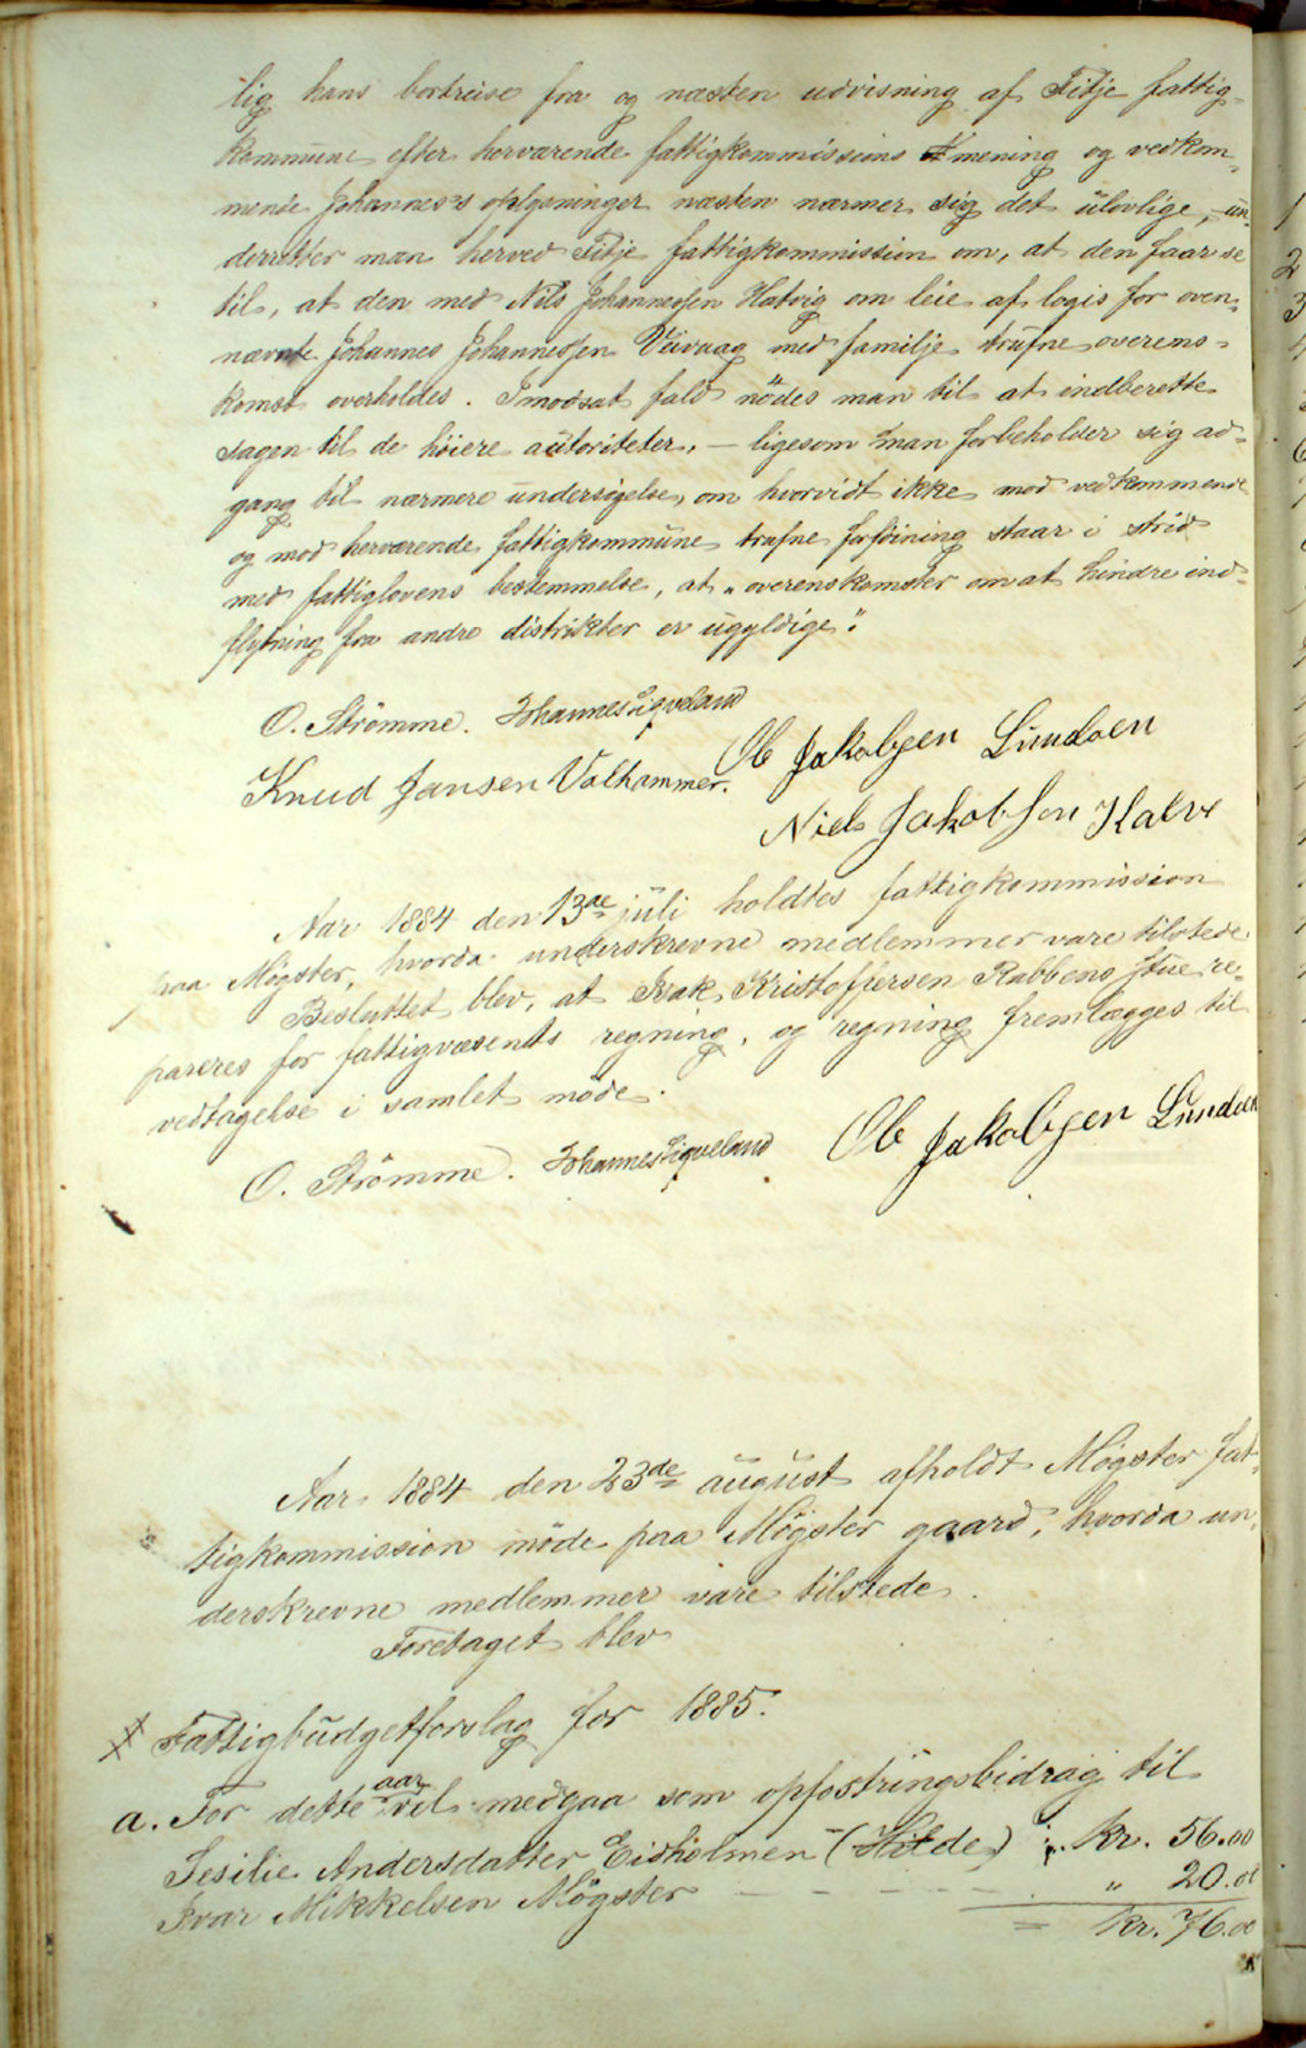 lig hans bortreise fra og næsten udvisning af Fitje fattig-
kommune efter herværende fattigkommissions mening og vedkom-
mende Johannes's oplysninger næsten nærmer sig det ulovlige, - un-
derretter man herved Fitje fattigkommission om, at den faar se
til, at den med Nils Johannessen Hatvig om leie af logis for oven-
nævnte Johannes Johannessen Veivaag med familje trufne overens-
komst overholdes. I modsat fald nödes man til at indberette
sagen til de höiere autoriteter, - ligesom man forbeholder sig ad-
gang til nærmere undersögelse, om hvorvidt ikke mod vedkommende
og mod herværende fattigkommune trufne forföining staar i strid
med fattiglovens bestemmelse, at „overenskomster om at hindre ind-
flytning fra andre distrikter er ugyldige".
O. Strömme. Johannes Sigveland
Ole Jakobsen Lundøen
Knud Jansen Valhammer.
Niels Jakobsen Kalve
Aar 1884 den 13de juli holdtes fattigkommission
paa Møgster, hvorda underskrevne medlemmer vare tilstede.
Besluttet blev, at Isak Kristoffersen Rabbens stue re-
pareres for fattigvæsenets regning, og regning fremlægges til
vedtagelse i samlet møde.
O. Strömme. Johannes Sigveland Ole Jakobsen Lundøen
Aar 1884 den 23de august afholdt Møgster fat-
tigkommission möde paa Møgster gaard, hvorda un-
derskrevne medlemmer vare tilstede.
Foretaget blev
Fattigbudgetforslag for 1885.
a. For dette aar vil medgaa som opfostringsbidrag til
Sesilie Andersdatter Eidholmen (Hilde) kr. 56.00
Ivar Mikkelsen Møgster - - - - - " 20.00
= kr. 76.00